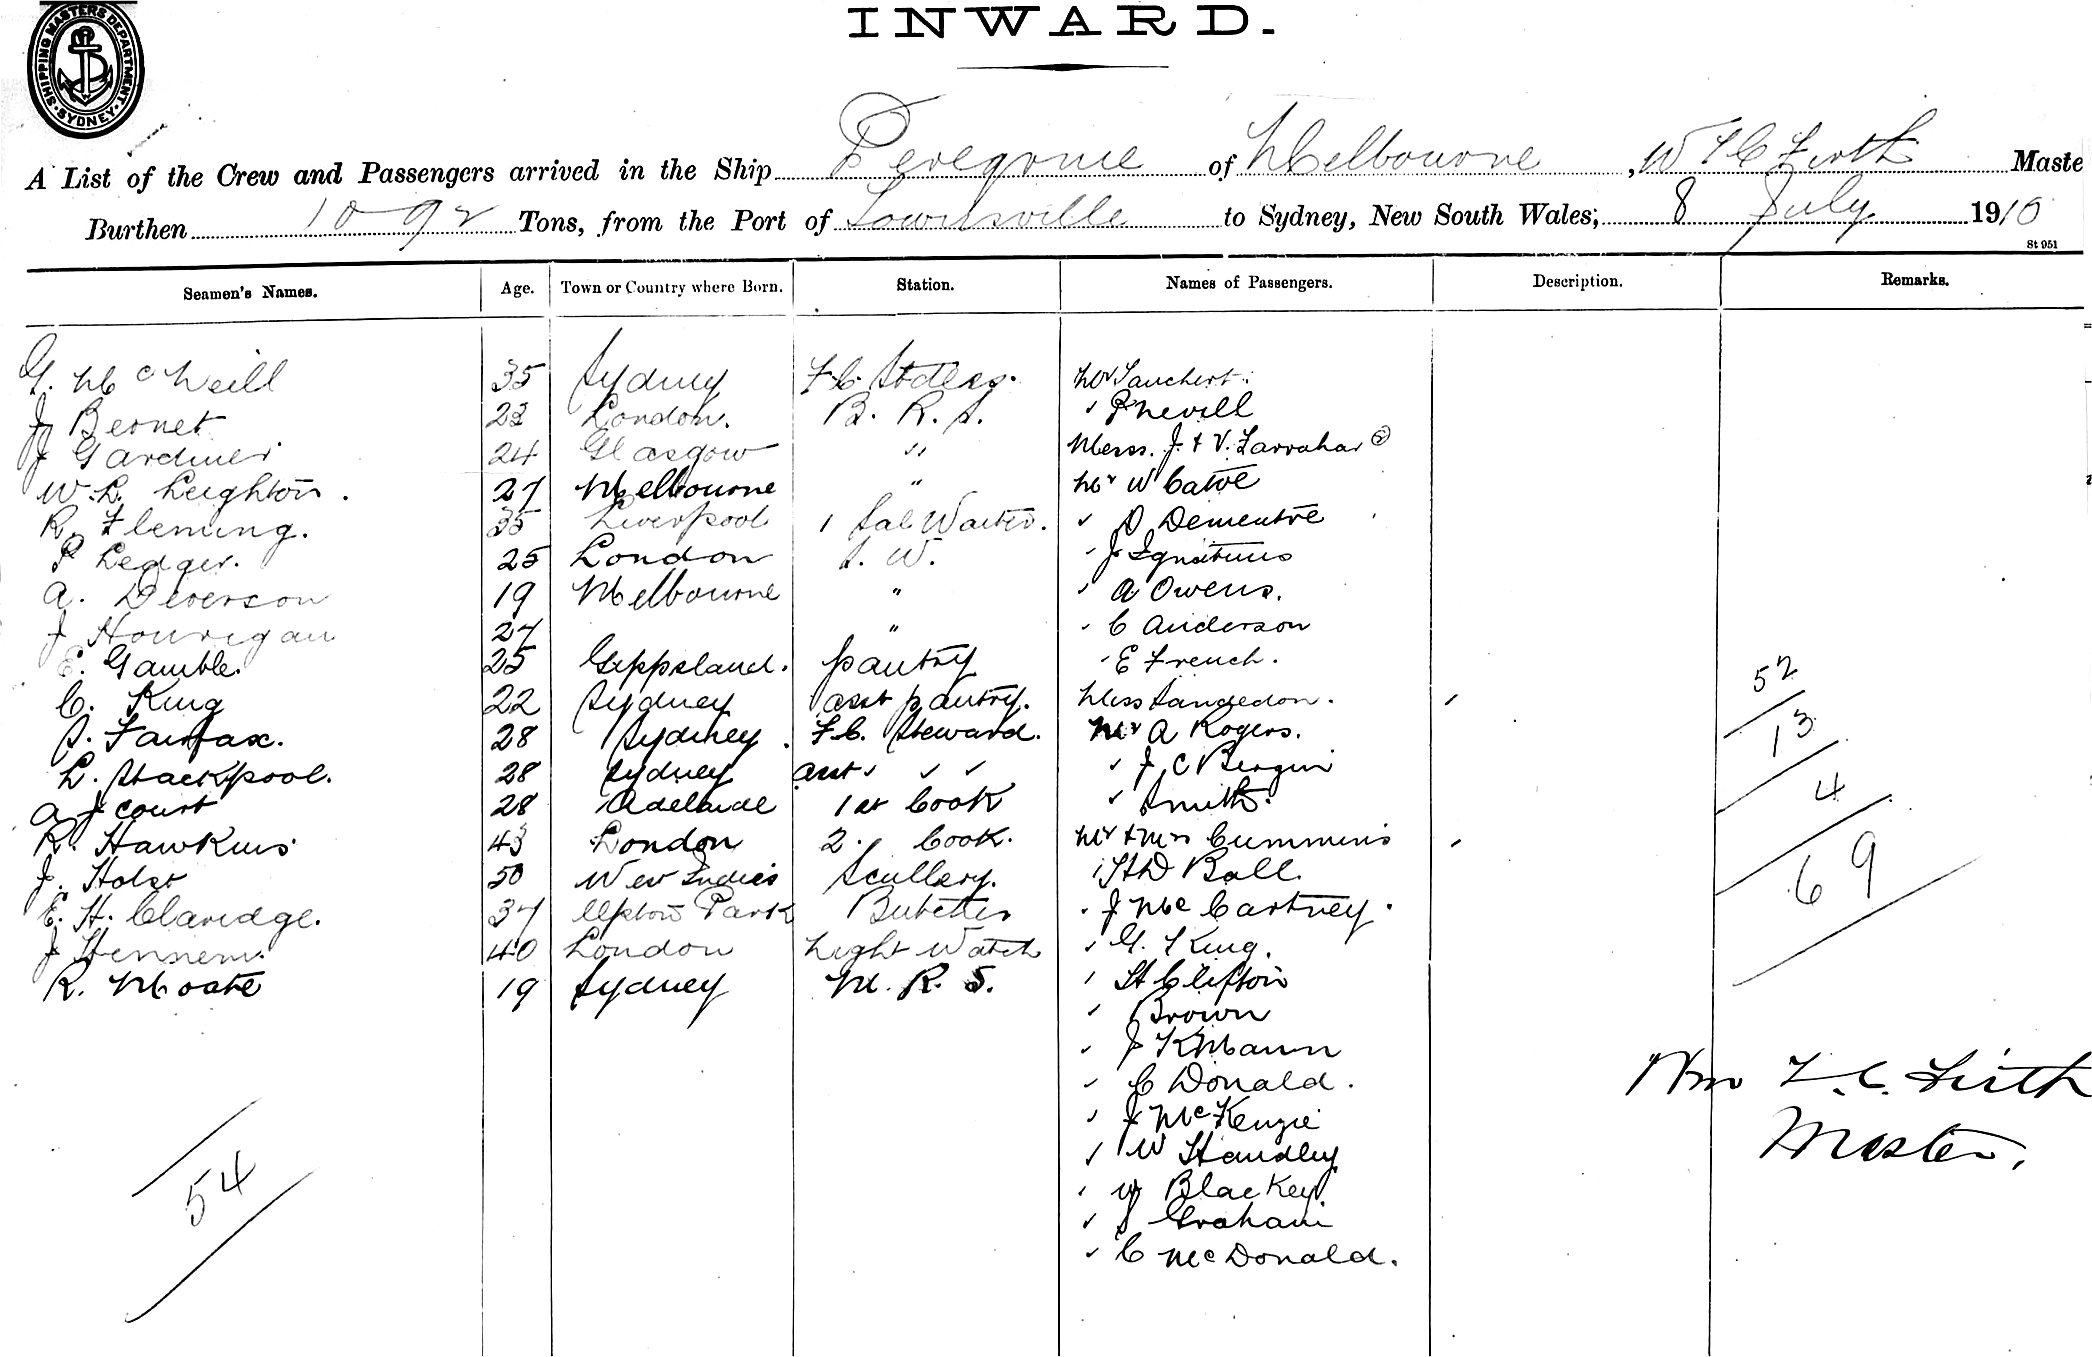 INWARD.
SHIPPING MASTERS DEPARTMENT SYDNEY
A List of the Crew and Passengers arrived in the Ship Peregrine of Melbourne, W F C Firth Maste
Burthen 1092 Tons, from the Port of Townsville to Sydney, New South Wales; 8 July 1910
St 951
Seamen's Names. Age. Town or Country where Born. Station. Names of Passengers. Description. Remarks.
G. McNeill 35 Sydney F.C. Mr
J Bernet 23 London. B. R. S. " Nevill
J Gardiner 24 Glasgow " Messrs. J. & V. 2
W. L. Leighton. 27 Melbourne " Mr W
R. Fleming. 35 Liverpool 1 Sal Waiter. "
P Ledger. 25 London S. W. " J
A. Deverson 19 Melbourne " " A Owens.
J Hourigan 27 " " C Anderson
E. Gamble. 25 Gippsland. pantry " E French.
C. King 22 Sydney asst pantry. Miss
S. Fairfax. 28 Sydney. F.C. Steward. Mr A Rogers.
L. Stackpool. 28 Sydney asst " " " " J C Bergin
A J Court 28 Adelaide 1st Cook " Smith.
R. Hawkins. 43 London 2. Cook. Mr & Mrs Cummins
J. Holst 50 West Indies Scullery. " Ball.
E. H. Claridge. 37 Upton Park " J McCartney.
J 40 London Night Watch " G. King.
R. Moate 19 Sydney M. R. S. " Clifton
" Brown
" J K Mann
" C Donald.
" J McKenzie
" W Handley
" W Blackey.
" S Graham
" C McDonald.
52
13
4
69
Wm F. C. Firth
Master.
54